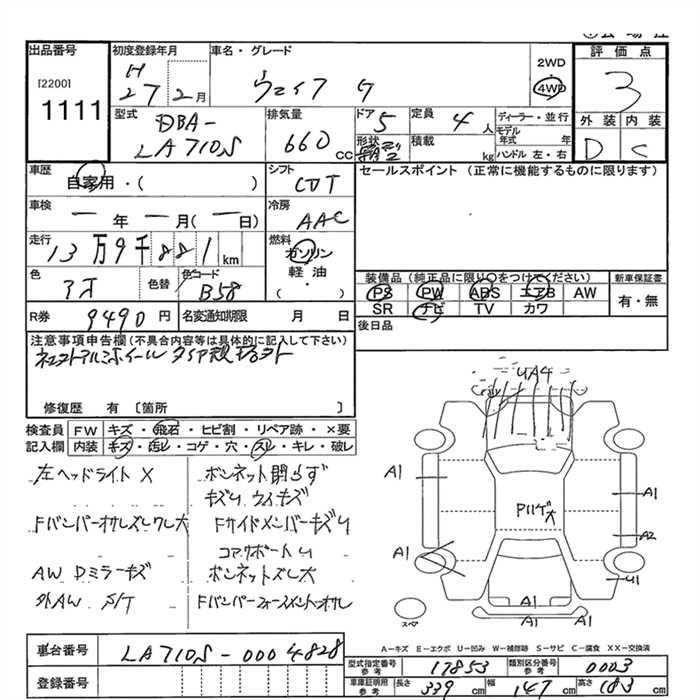 出品番号
[2200]
1111
初度登録年月
H
27 2月
車名・グレード
ウェイク G
2WD
4WD
評価点
3
外装 内装
D C
型式
DBA-
LA710S
排気量
660 CC
ドア 5
形状
定員 4人
積載 kg
ディーラー・並行
モデル年式 年
ハンドル 左・右
車歴
自家用・( )
シフト
CDT
セールスポイント (正常に機能するものに限ります)
車検
一 年 一 月(一 日)
冷房
AAC
走行
13万9千881km
燃料
ガソリン
軽油・
( )
色
色替
色コード
B58
装備品(純正品に限り○をつけてください)
PS PW ABS エアB AW
SR ナビ TV カワ
新車保証書
有・無
後日品
R券
9490円
名変通知期限 月 日
注意事項申告欄(不具合内容等は具体的に記入して下さい)
修復歴 有 〔箇所 〕
検査員記入欄
FW キズ・飛石・ヒビ割・リペア跡・×要
内装 キズ・汚レ・コゲ・穴・スレ・キレ・破レ
左ヘッドライト X
ボンネット閉らず
キズU ウイキズ
FバンパーオサレズレワレX大
Fサイドメンバーキズ U
コアサポート U
AW Dミラーキズ
ボンネットズレ大
外AW S/T
Fバンパーフォースメントオサレ
UA4
A1
A1
A1
A2
U1
A1
Pルーゲ大
スペア
A-キズ E-エクボ U-凹み W-補修跡 S-サビ C-腐食 XX-交換済
車台番号
LA710S-0004828
登録番号
型式指定番号
参考
17853
類別区分番号
参考
0003
車庫証明用
参考
長さ 339cm 幅 147cm 高さ 183cm